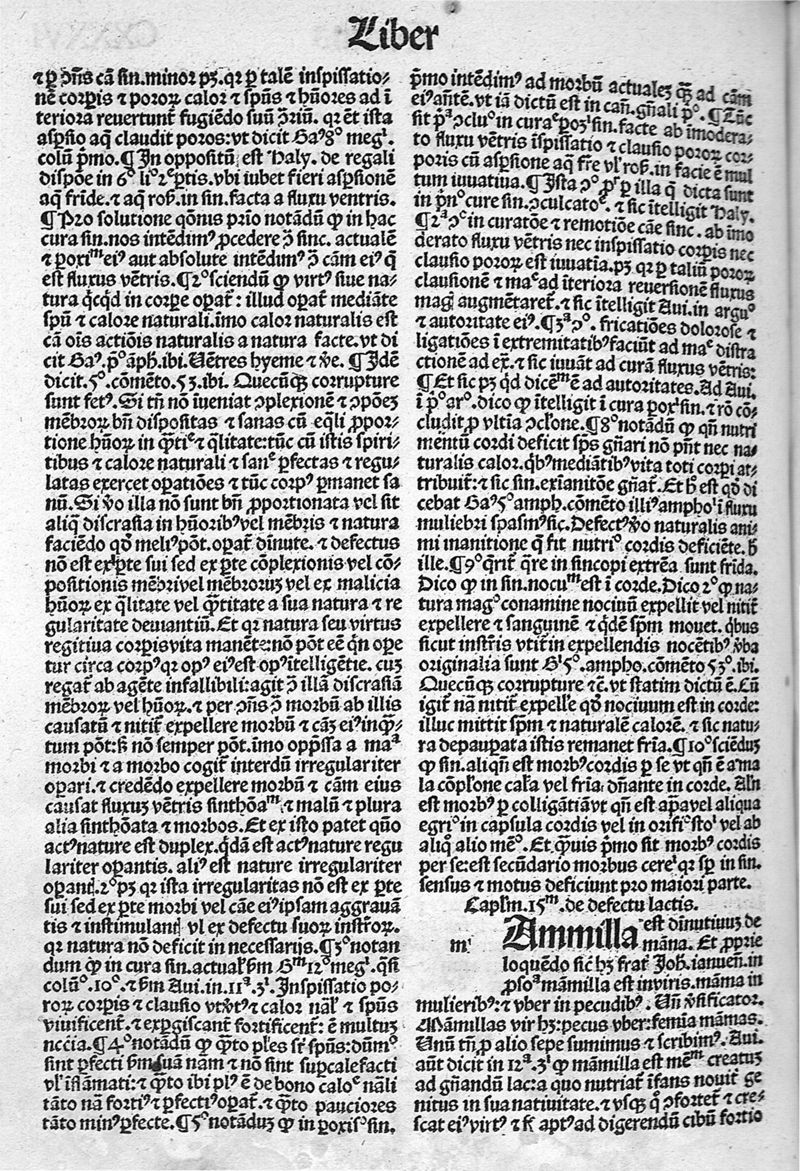 Liber
⁊ ꝑ ↄ̃ns cã ſin.minor pꝫ.qꝛ ꝑ talẽ inſpiſſatio-
nẽ corꝑis ⁊ pororꝝ calor ⁊ ſpũs ⁊ hũores ad ĩ
teriora revertunt̃ fugiẽdo ſuũ ↄ̃riũ. qꝛ ẽt iſta
aſpſio aq̃ claudit poros: vt dicit Ga.8° megᵗ.
colũ p̃mo. ¶ In oppoſitũ eſt Haly. de regali
diſpõe in 6° li° 2ᵉ ꝑtis. vbi iubet fieri aſꝑſionẽ
aq̃ fride. ⁊ aq̃ roſ. in ſin. facta a fluxu ventris.
¶ Pro ſolutione q̃onis prio notãdũ ꝙ in hac
cura ſin. nos intẽdimꝰ ꝓcedere ↄ̃ ſinc. actualẽ
⁊ ꝓximã eiꝰ aut abſolute intẽdimꝰ ↄ̃ cãm eiꝰ q̃
eſt fluxus vẽtris. ¶ 2° ſciendũ ꝙ virtꝰ ſiue na-
tura q̇cq̇d in corpe operat̃: illud operat̃ mediãte
ſpũ ⁊ calore naturali. ĩmo calor naturalis eſt
cã oĩs actiõis naturalis a natura facte. vt di
cit Gaˢ. p̃° aph. ibi. Uẽtres hyeme ⁊ v̉e. ¶ Idẽ
dicit. 5°. cõmẽto. 53. ibi. Quecũqꝫ corrupture
ſunt fetꝰ. Si tñ nõ ĩveniat ↄplexionẽ ⁊ ↄpõez
mẽbrorꝝ bñ diſpoſitas ⁊ ſanas cũ eq̃li ꝓpor-
tione hũorꝝ in q̃titate ⁊ q̃litate: tũc cũ iſtis ſpiri-
tibus ⁊ calore naturali ⁊ ſane ꝑfectas ⁊ regu-
latas exercet operatiões ⁊ tũc corpꝰ ꝑmanet ſa
nũ. Si v̉o illa nõ ſunt bñ ꝓportionata vel ſit
aliq̃ diſcraſia in hũoribꝰ vel mẽbris ⁊ natura
faciẽdo qđ meliꝰ põt. operat̃ dĩnute. ⁊ defectus
nõ eſt ex ꝑte ſui ſed ex ꝑte cõplexionis vel cõ-
poſitionis mẽbri vel mẽbrorum vel ex malicia
hũorꝝ ex q̃litate vel q̃titate a ſua natura ⁊ re
gularitate deviantiũ. Et qꝛ natura ſeu virtus
regitiva corpis vita manẽte: nõ põt eẽ q̃n ope
tur circa corpꝰ qꝛ opꝰ eiꝰ eſt opꝰ ĩtelligẽtie. cuꝫ
regat̃ ab agẽte infallibili: agit ↄ̃ illã diſcraſiã
mẽbrorꝝ vel hũorꝝ. ⁊ per ↄ̃ns ↄ̃ morbũ ab illis
cauſatũ ⁊ nitit̃ expellere morbũ ⁊ cãꝫ eiꝰ inq̃-
tum põt: ſꝫ nõ ſemper põt. ĩmo opp̃ſſa a maᵃ
morbi ⁊ a morbo cogit̃ interdũ irregulariter
opari. ⁊ credẽdo expellere morbũ ⁊ cãm eius
cauſat fluxuꝫ vẽtris ſinthõaᵐ ⁊ malũ ⁊ plura
alia ſinthõata ⁊ morbos. Et ex iſto patet quõ
actꝰ nature eſt duplex. q̇dã eſt actꝰ nature regu
lariter operantis. aliꝰ eſt nature irregulariter
operant̃. 2° pꝫ qꝛ iſta irregularitas nõ eſt ex ꝑte
ſui ſed ex ꝑte morbi vel cãe eiꝰ ipſam aggravã
tis ⁊ inſtimulant̃ vl̃ ex defectu ſuorꝝ inſtrorꝝ.
qꝛ natura nõ deficit in neceſſarijs. ¶ 3° notan
dum ꝙ in cura ſin. actual̃ ẜm Gᵐ 12° megᵗ. q̃ſi
colũ°. 10°. ⁊ ẜm Avi. in. 11ᵃ. 3ᵗ. Inſpiſſatio po-
rorꝝ corpis ⁊ clauſio vt v̉tꝰ ⁊ calor nãl̃ ⁊ ſpũs
vivificent̃. ⁊ exꝑgiſcant̃ fortificent̃: ẽ multuꝫ
neccĩa. ¶ 4° notãdũ ꝙ q̃to pl̃es ſt̃ ſpũs: dũmᵒ
ſint ꝑfecti ẜm ſuã nãm ⁊ nõ ſint ſuꝑcalefacti
vl̃ ĩflãmati: ⁊ q̃to ibi plꝰ ẽ de bono caloᵉ nãli
tãto nãm fortiꝰ ⁊ ꝑfectiꝰ operat̃. ⁊ q̃to pauciores
tãto minꝰ ꝑfecte. ¶ 5° notãduꝫ ꝙ in ꝓxiſmo ſin.
p̃mo intẽdimꝰ ad morbũ actualeꝫ q̃ꝫ ad cãm
eiꝰ ãntẽ. vt iã dictũ eſt in can̉. gñali p̃°. ¶ Tũc
ſit p̃ᵃ ↄcluᵒ in curaᵉ ꝓxᵉ ſin. facte ab ĩmodera-
to fluxu vẽtris ĩſpiſſatio ⁊ clauſio pororꝝ cor-
poris cũ aſperſione aq̃ fre vl̃ roſ. in facie ẽ mul
tum iuvativa. ¶ Iſta ↄᵒ pꝫ ꝑ illa q̃ dicta ſunt
in p̃nᵒ cure ſin. ↄculcatoᵉ. ⁊ ſic ĩtelligit Haly.
¶ 2ᵃ ↄᵒ in curatõe ⁊ remotiõe cãe ſinc. ab ĩmo
derato fluxu vẽtris nec inſpiſſatio corpis nec
clauſio pororꝝ eſt iuvatĩa. pꝫ qꝛ ꝑ taliũ pororꝝ
clauſionẽ ⁊ maᵉ ad ĩteriora reverſionẽ fluxus
mag̃ augmẽtaret̃. ⁊ ſic ĩtelligit Avi. in arguᵒ
⁊ autoritate eiꝰ. ¶ 3ᵃ ↄᵒ. fricatiões doloroſe ⁊
ligatiões ĩ extremitatibꝰ faciũt ad maᵉ diſtra
ctionẽ ad ex̃. ⁊ ſic iuvãt ad curã fluxus vẽtris:
¶ Et ſic pꝫ q̇d dicẽᵐ ẽ ad autoritates. Ad Avi.
ĩ p̃° arᵒ. dico ꝙ ĩtelligit ĩ cura ꝓxᵗ ſin. ⁊ rõ cõ-
cludit ꝓ vltĩa ↄcl̃one. ¶ 8° notãdũ ꝙ qñ nutri
mẽtũ cordi deficit ſp̃s gñari nõ pñt nec na-
turalis calor. q̇bꝰ mediãtibꝰ vita toti corpi at-
tribuit̃: ⁊ ſic ſin. exĩanitõe gñat̃. Et h̃ eſt qđ di
cebat Gaˢ 5° amph. cõmẽto illiꝰ amphoᵗ ĩ fluxu
muliebri ſpaſmꝰ ſic. Defectꝰ v̉o naturalis ani
mi inanitione q̃ fit nutriᵒ cordis deficiẽte. h̃
ille. ¶ 9° q̃rit̃ q̃re in ſincopi extrẽa ſunt frida.
Dico ꝙ in ſin. nocuᵐ eſt ĩ corde. Dico 2° ꝙ na-
tura magᵒ conamine nocivũ expellit vel nitit̃
expellere ⁊ ſanguinẽ ⁊ q̇dẽ ſpm̃ movet. q̇bus
ſicut inſtrĩs vtit̃ in expellendis nocẽtibꝰ v̉ba
originalia ſunt Gᵗ 5°. ampho. cõmẽto 53°. ibi.
Quecũqꝫ corrupture ⁊c̃. vt ſtatim dictũ ẽ. Cũ
igit̃ nã nitit̃ expelle᷑ qđ nocivum eſt in corde:
illuc mittit ſpm̃ ⁊ naturalẽ calorẽ. ⁊ ſic natu-
ra depauꝑata iſtis remanet fria. ¶ 10° ſciẽduꝫ
ꝙ ſin. aliqñ eſt morbꝰ cordis ꝑ ſe vt qñ ẽ a ma
la cõpl̃one cal̃a vel fria. dñante in corde. Aliñ
eſt morbꝰ ꝑ colligãtiã vt qñ eſt apãvel aliqua
egriᵒ in capſula cordis vel in orifiᵒ ſtoᵗ vel ab
aliq̃ alio mẽᵒ. Et q̃vis p̃mo ſit morbꝰ cordis
per ſe: eſt ſecũdario morbus cereᵗ qꝛ ſp̃ in ſin.
ſenſus ⁊ motus deficiunt pro maiori parte.
Caplm̃. 15ᵐ. de defectu lactis.
mˢ Ammilla eſt dĩnutivuꝫ de
mãna. Et ꝓprie
loquẽdo ſic̃ hꝫ frat̃ Joh. ianueñ. in
ꝓſoᵃ mãmilla eſt in viris. mãma in
mulieribꝰ: ⁊ vber in pecudibꝰ. Uñ v̉ſificator.
Mãmillas vir hꝫ: pecus vber: femĩa mãmas.
Unũ tñ ꝓ alio ſepe ſumimus ⁊ ſcribimꝰ. Avi.
aũt dicit in 12ᵃ. 3ᵗ ꝙ mãmilla eſt mẽᵐ creatuꝫ
ad gñandũ lac: a quo nutriat̃ ĩfans novit̃ ge
nitus in ſua nativitate. ⁊ vſqꝫ q̊ ↄfortet̃ ⁊ cre-
ſcat eiꝰ virtꝰ ⁊ fit aptꝰ ad digerendũ cibũ fortio